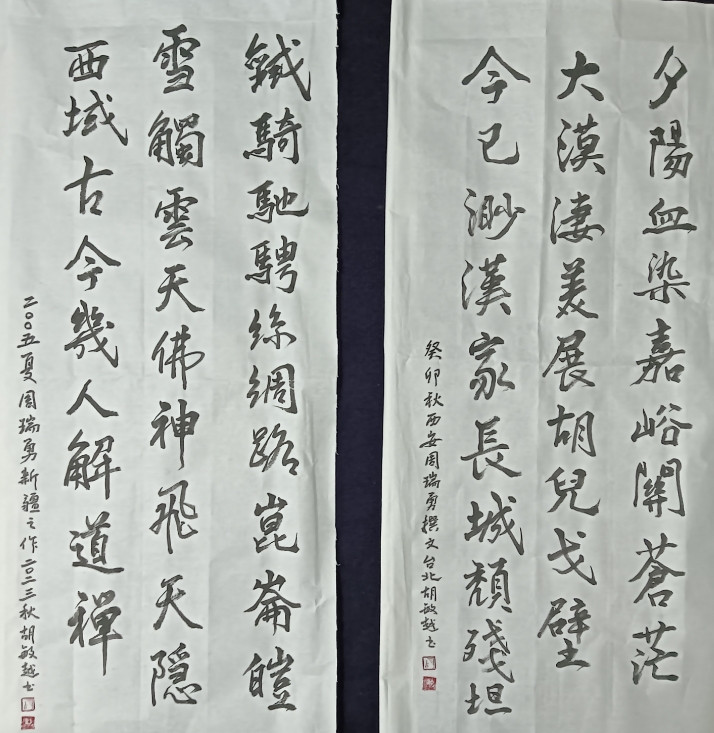 夕陽血染嘉峪關蒼茫
大漠淒美展胡兒戈壁
今已渺漢家長城頹殘垣
癸卯秋西安周瑞勇撰文台北胡敏越书
鐵騎馳騁絲綢路崑崙皚
雪觸雲天佛神飛天隱
西域古今幾人解道禪
二〇〇五夏周瑞勇新疆之作二〇二三秋胡敏越书